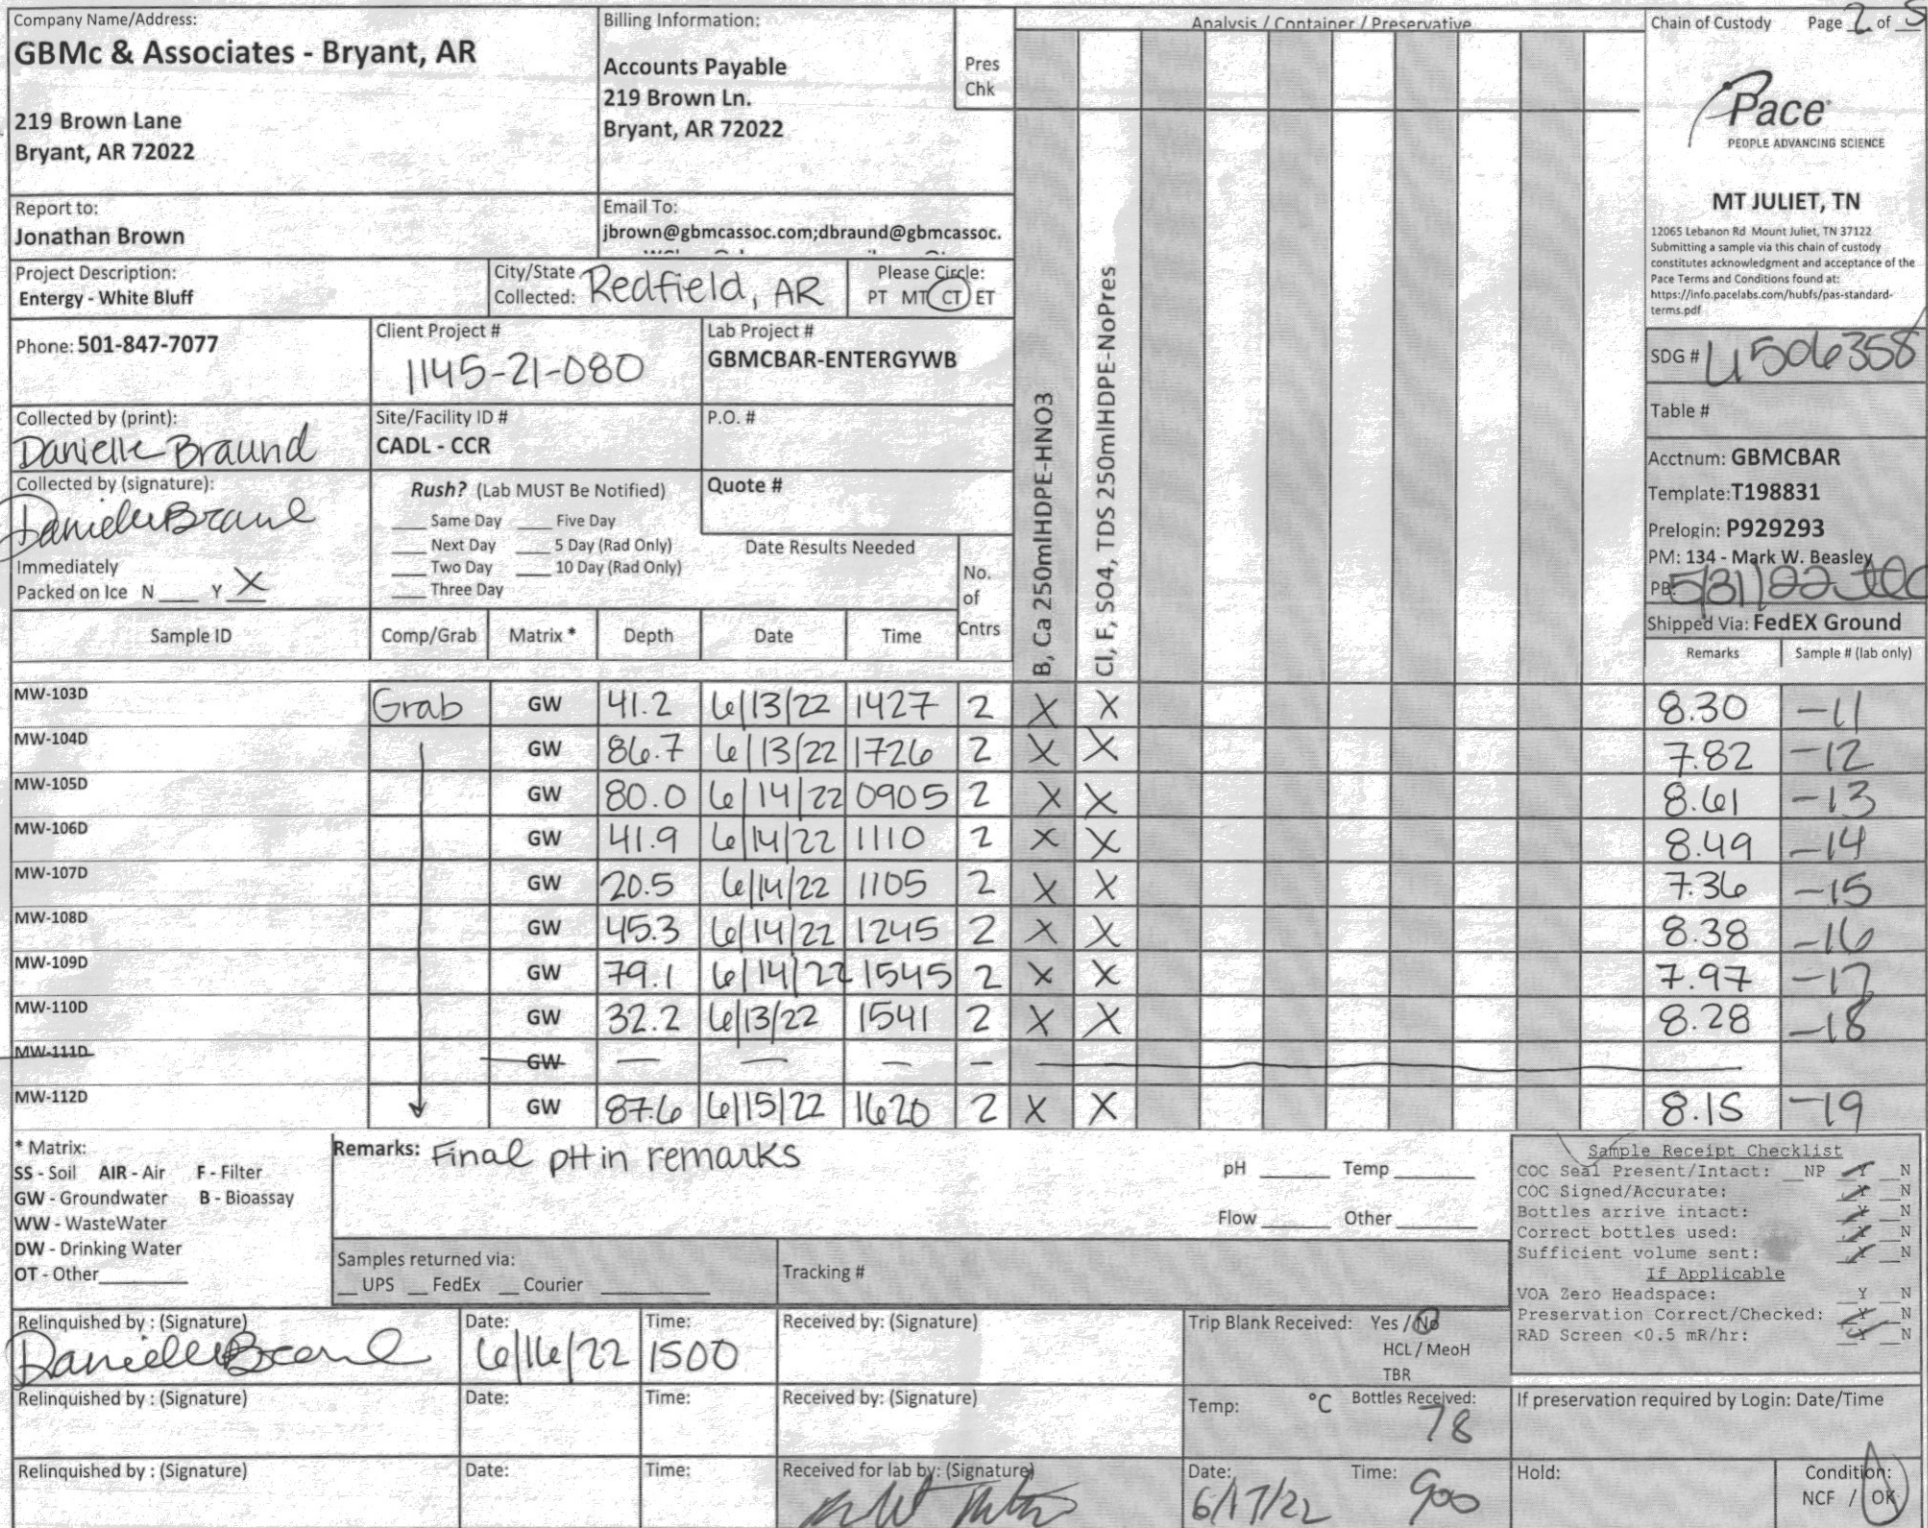 Company Name/Address:
GBMc & Associates - Bryant, AR
219 Brown Lane
Bryant, AR 72022
Billing Information:
Accounts Payable
219 Brown Ln.
Bryant, AR 72022
Pres
Chk
Analysis / Container / Preservative
Chain of Custody Page 2 of 5
Pace
PEOPLE ADVANCING SCIENCE
MT JULIET, TN
12065 Lebanon Rd Mount Juliet, TN 37122
Submitting a sample via this chain of custody
constitutes acknowledgment and acceptance of the
Pace Terms and Conditions found at:
https://info.pacelabs.com/hubfs/pas-standard-
terms.pdf
Report to:
Jonathan Brown
Email To:
jbrown@gbmcassoc.com;dbraund@gbmcassoc.
Project Description:
Entergy - White Bluff
City/State
Collected: Redfield, AR
Please Circle:
PT MT CT ET
Phone: 501-847-7077
Client Project #
1145-21-080
Lab Project #
GBMCBAR-ENTERGYWB
Collected by (print):
Danielle Braund
Site/Facility ID #
CADL - CCR
P.O. #
Collected by (signature):
Danielle Braund
Immediately
Packed on Ice N ___ Y X
Rush? (Lab MUST Be Notified)
___ Same Day ___ Five Day
___ Next Day ___ 5 Day (Rad Only)
___ Two Day ___ 10 Day (Rad Only)
___ Three Day
Quote #
Date Results Needed
No.
of
Cntrs
B, Ca 250mlHDPE-HNO3
Cl, F, SO4, TDS 250mlHDPE-NoPres
SDG # L1506358
Table #
Acctnum: GBMCBAR
Template:T198831
Prelogin: P929293
PM: 134 - Mark W. Beasley
PB: 5/31/22
Shipped Via: FedEX Ground
Sample ID Comp/Grab Matrix * Depth Date Time Remarks Sample # (lab only)
MW-103D Grab GW 41.2 6/13/22 1427 2 X X 8.30 -11
MW-104D GW 86.7 6/13/22 1726 2 X X 7.82 -12
MW-105D GW 80.0 6/14/22 0905 2 X X 8.61 -13
MW-106D GW 41.9 6/14/22 1110 2 X X 8.49 -14
MW-107D GW 20.5 6/14/22 1105 2 X X 7.36 -15
MW-108D GW 45.3 6/14/22 1245 2 X X 8.38 -16
MW-109D GW 79.1 6/14/22 1545 2 X X 7.97 -17
MW-110D GW 32.2 6/13/22 1541 2 X X 8.28 -18
MW-111D GW — — — —
MW-112D GW 87.6 6/15/22 1620 2 X X 8.15 -19
* Matrix:
SS - Soil AIR - Air F - Filter
GW - Groundwater B - Bioassay
WW - WasteWater
DW - Drinking Water
OT - Other
Remarks: Final pH in remarks
pH ___ Temp ___
Flow ___ Other ___
Samples returned via:
__ UPS __ FedEx __ Courier
Tracking #
Sample Receipt Checklist
COC Seal Present/Intact: __NP Y N
COC Signed/Accurate: Y N
Bottles arrive intact: Y N
Correct bottles used: Y N
Sufficient volume sent: Y N
If Applicable
VOA Zero Headspace: Y N
Preservation Correct/Checked: Y N
RAD Screen <0.5 mR/hr: Y N
Relinquished by : (Signature)
Danielle Braund
Date:
6/16/22
Time:
1500
Received by: (Signature)
Trip Blank Received: Yes / No
HCL / MeoH
TBR
Relinquished by : (Signature)
Date:
Time:
Received by: (Signature)
Temp: °C
Bottles Received:
78
If preservation required by Login: Date/Time
Relinquished by : (Signature)
Date:
Time:
Received for lab by: (Signature)
Date:
6/17/22
Time:
900
Hold:
Condition:
NCF / OK